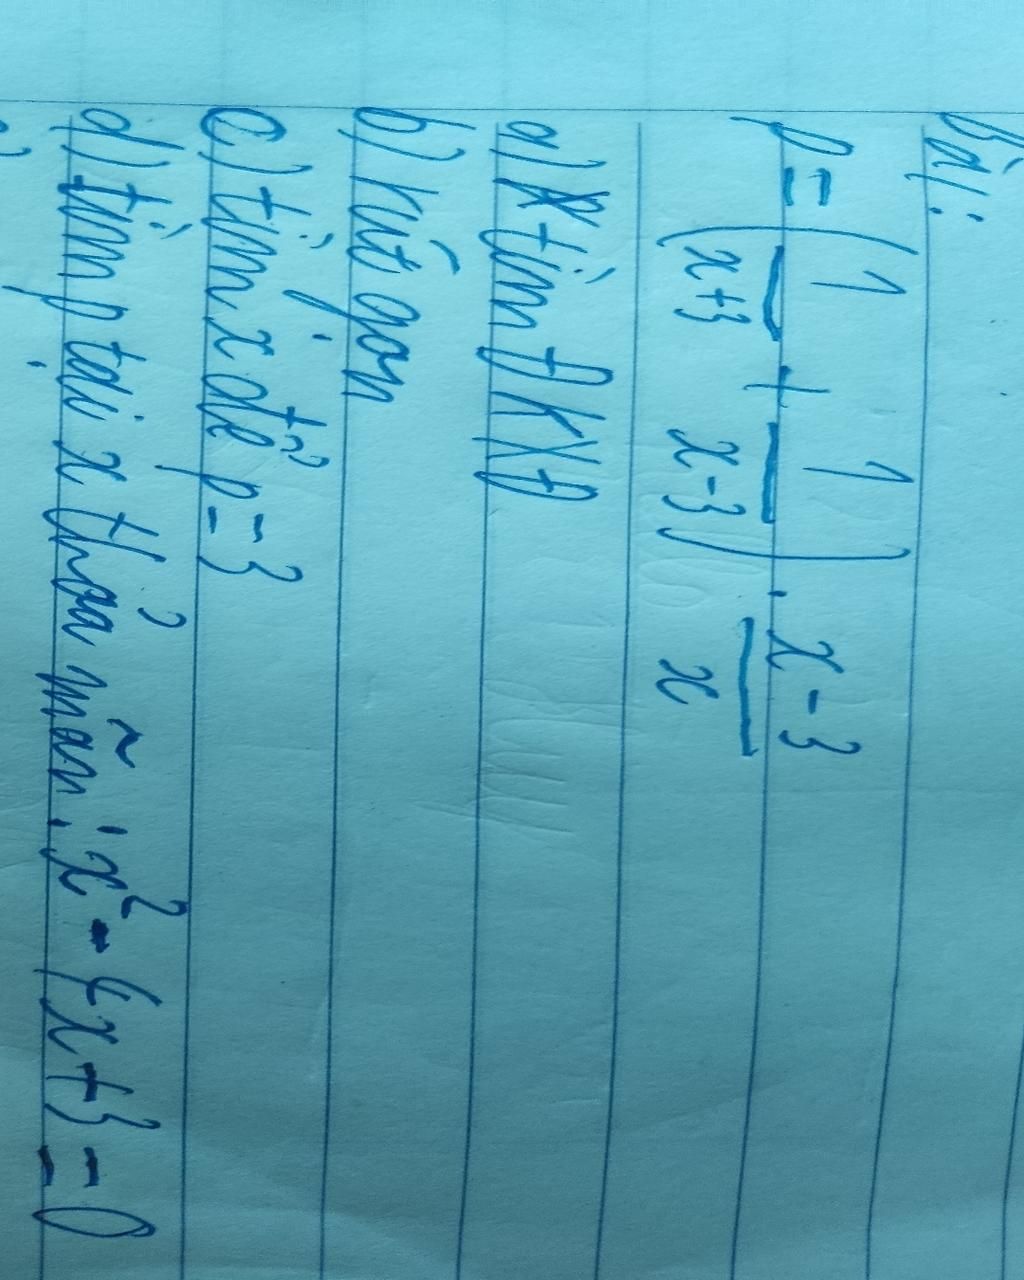 Bài:
P = (1/(x+3) + 1/(x-3)) . (x-3)/x
a) tìm ĐKXĐ
b) rút gọn
c) tìm x để p = 3
d) tìm p tại x thỏa mãn: x² - 4x + 3 = 0